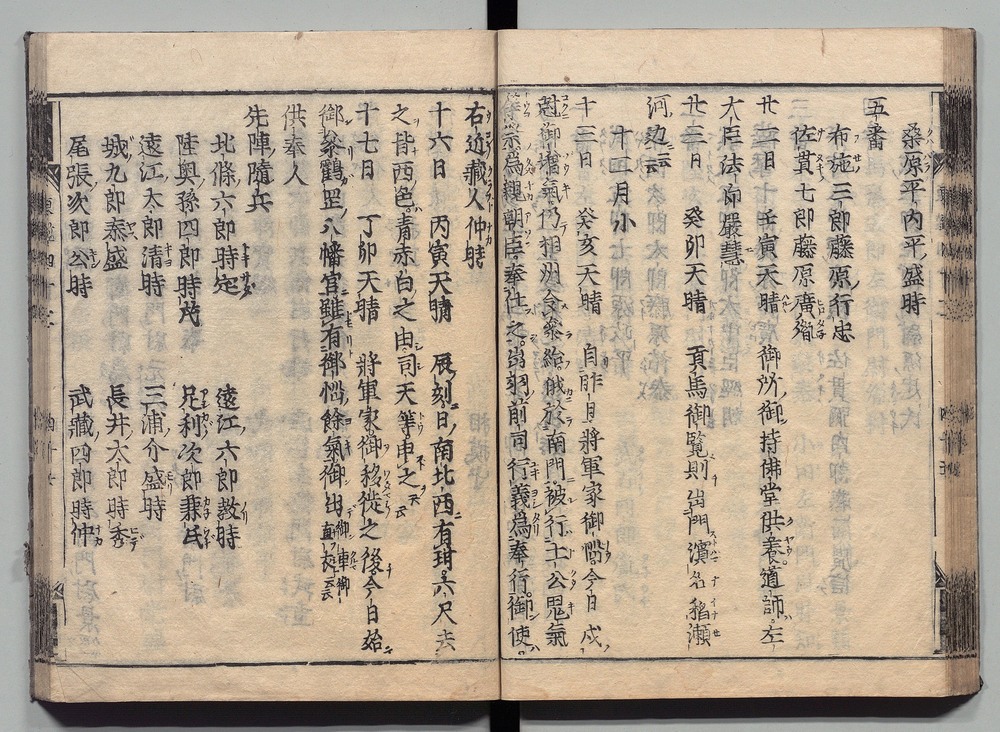 桑原平内平盛時
五番
布施三郎藤原行忠
佐貫七郎藤原廣
廿二日　壬寅天晴　御所御持佛堂供養道師左
大臣法印嚴慧
廿三日　癸卯天晴　貢馬御覧則出門濱名稲瀬
河边云云
十二月小
十三日　癸亥天晴　自昨日將軍家御惱今日戌
御氣仍相州令参給俄於南門被行土公鬼氣
祭為親朝臣奉仕之出羽前司行義為奉行御使
右近蔵人仲時
十六日　丙寅天晴　辰刻日南北西有珥六尺去
之皆西色青赤白之由司天等申之云云
十七日　丁卯天晴　將軍家御移徙之後今日始
御参鶴岡八幡宮雖有御惱餘氣御出御車御直云云
供奉人
先陣隨兵
北條六郎時定　遠江六郎教時
陸奥孫四郎時茂　足利次郎兼氏
遠江太郎清時　三浦介盛時
城九郎泰盛　長井太郎時秀
尾張次郎公時　武蔵四郎時仲